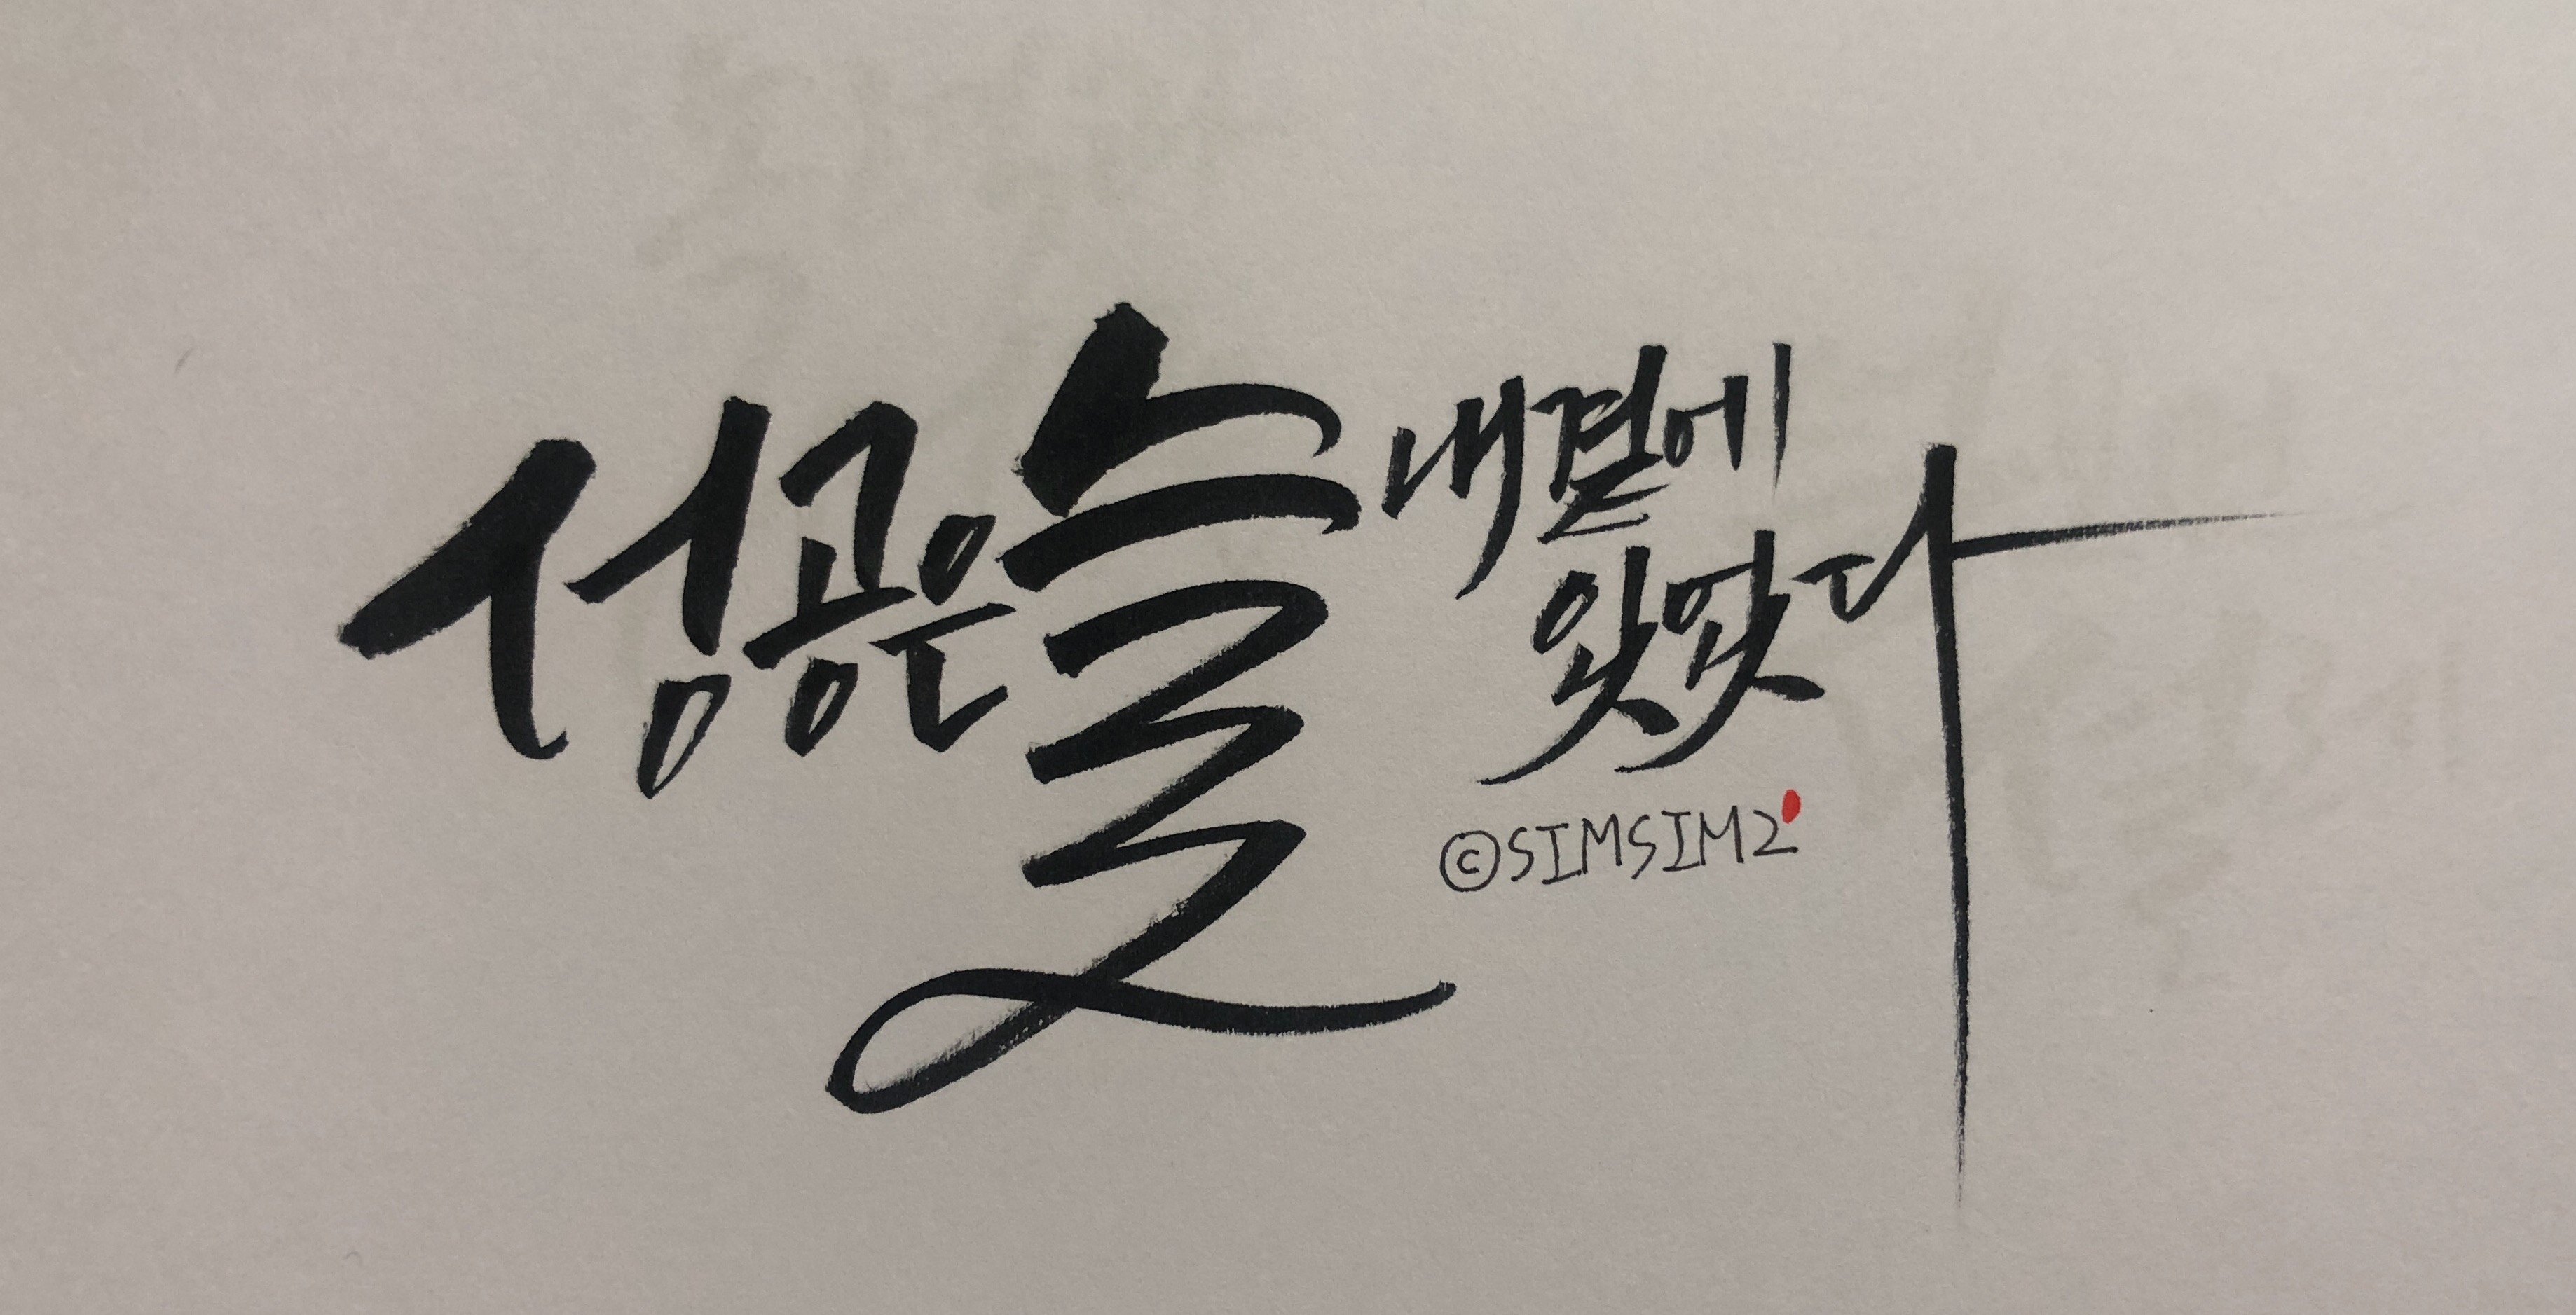 성공은 늘 내곁에
있었다
©SIMSIM2